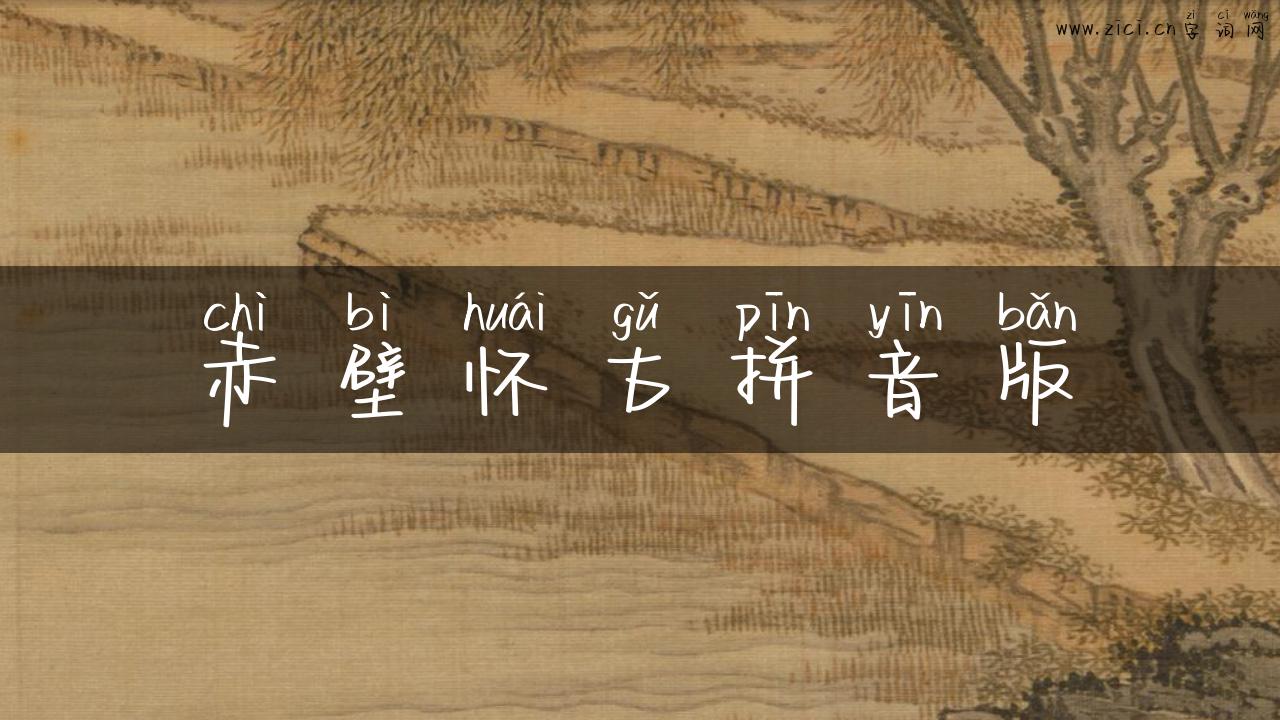 zì cí wǎng
www.zici.cn字词网
chì bì huái gǔ pīn yīn bǎn
赤壁怀古拼音版